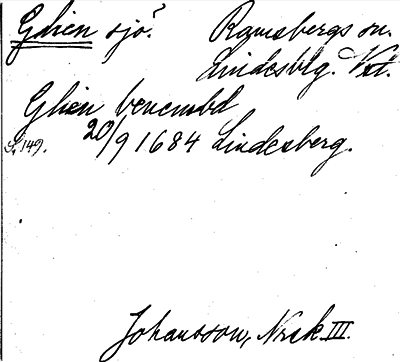 Glien sjö? Ramsbergs sn.
Lindesblg. Vstl.
Glien benembd
S. 149. 20/9 1684 Lindesberg.
Johansson, Norsk III.